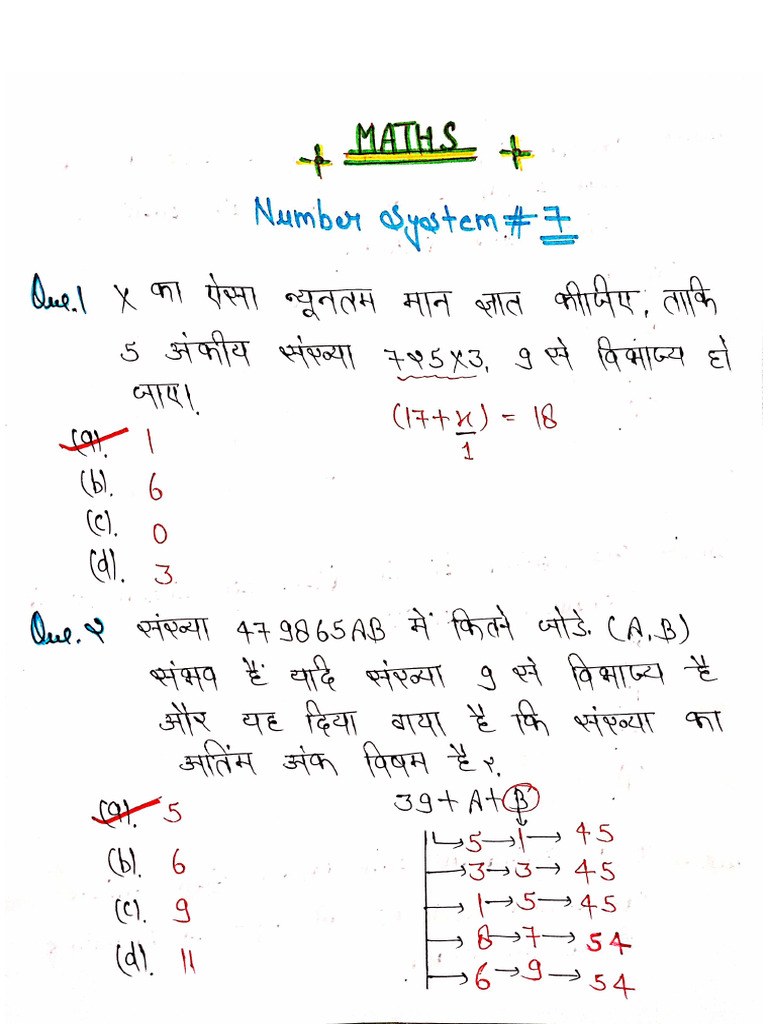 MATHS
Number System # 7
Que.1 X का ऐसा न्यूनतम मान ज्ञात कीजिए, ताकि
5 अंकीय संख्या 725X3, 9 से विभाज्य हो
जाए।
(17+x) = 18
1
(a). 1
(b). 6
(c). 0
(d). 3
Que.2 संख्या 479865AB में कितने जोडे. (A,B)
संभव हैं यदि संख्या 9 से विभाज्य है
और यह दिया गया है कि संख्या का
अतिंम अंक विषम है ?.
(a). 5
(b). 6
(c). 9
(d). 11
39 + A + B
→ 5 → 1 → 45
→ 3 → 3 → 45
→ 1 → 5 → 45
→ 8 → 7 → 54
→ 6 → 9 → 54